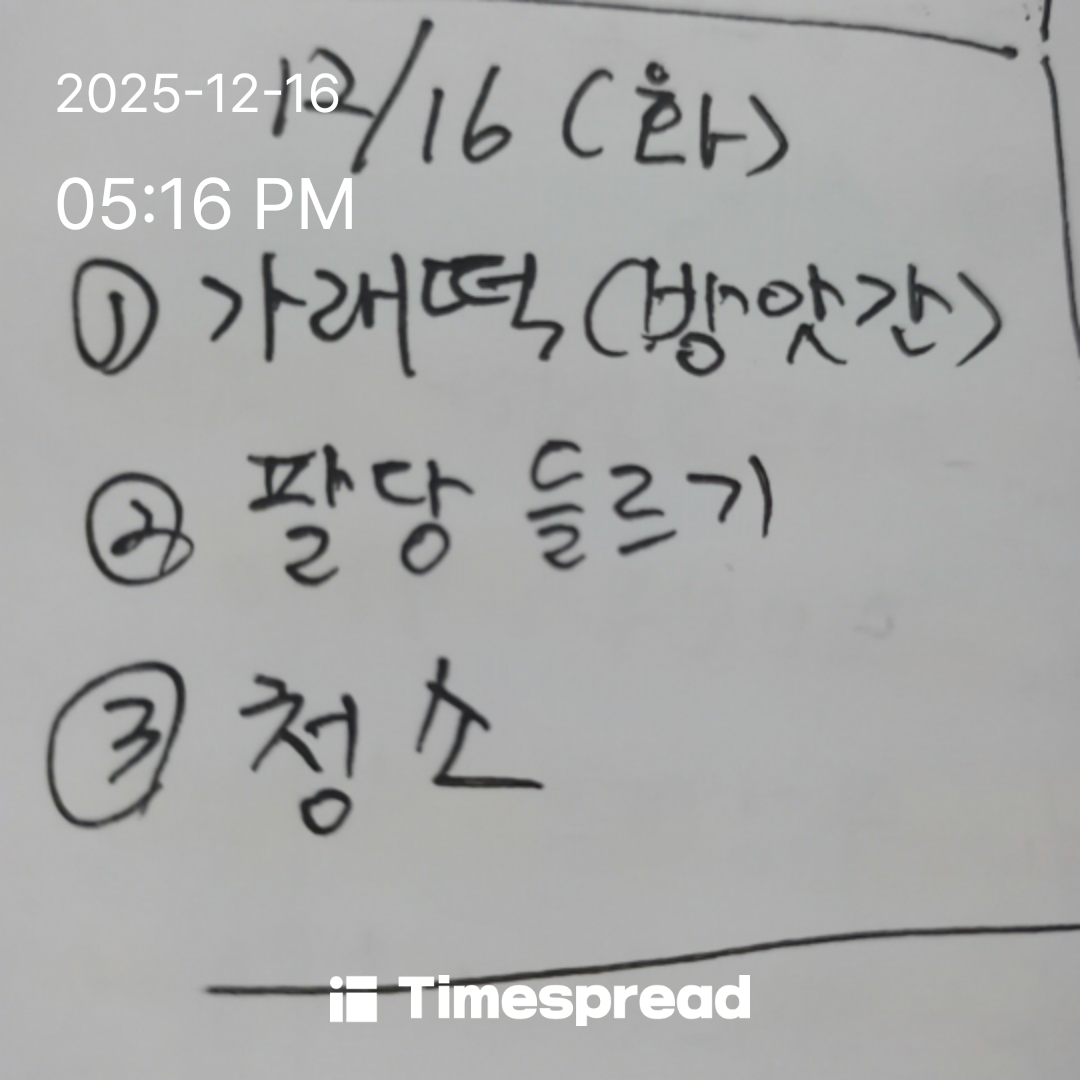 2025-12-16
12/16 (화)
05:16 PM
① 가래떡 (방앗간)
② 팔당 들르기
③ 청소
Timespread